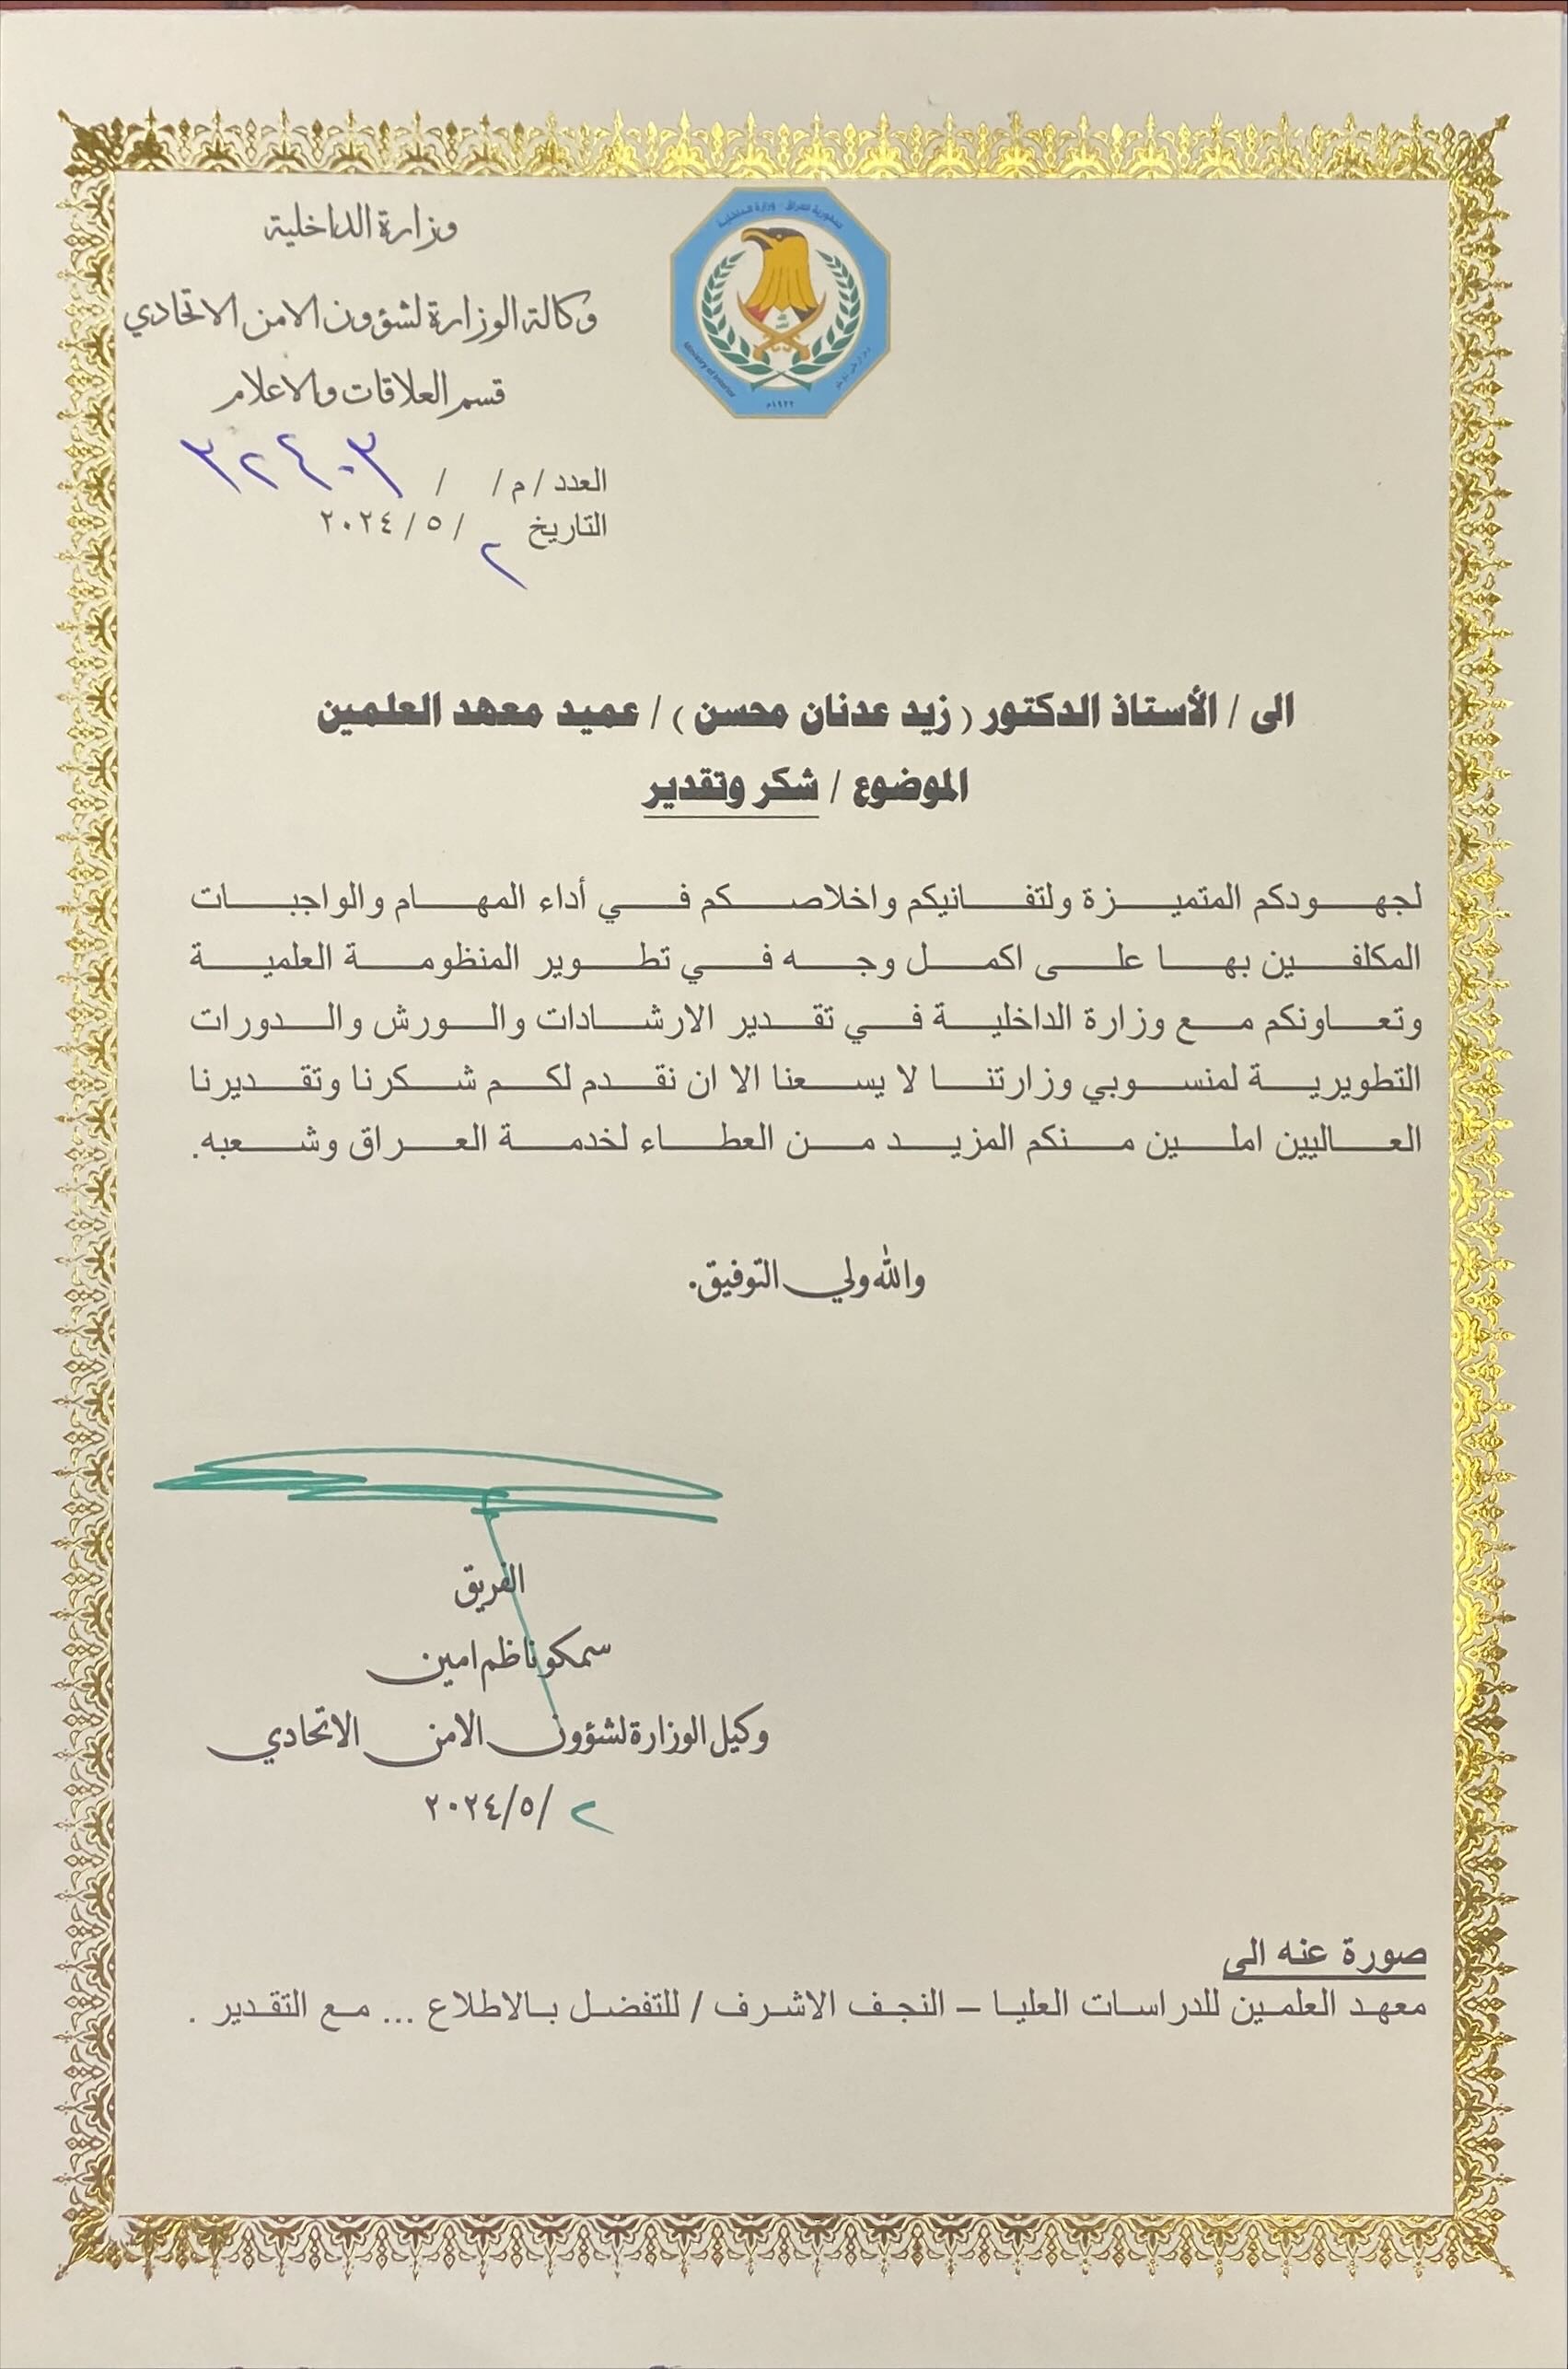 جمهورية العراق - وزارة الداخلية
Ministry of Interior
١٩٢٢م
وزارة الداخلية
وكالة الوزارة لشؤون الامن الاتحادي
قسم العلاقات والاعلام
العدد / م / / ٣٢٤٠٣
التاريخ ٢ / ٥ / ٢٠٢٤
الى / الأستاذ الدكتور ( زيد عدنان محسن ) / عميد معهد العلمين
الموضوع / شكر وتقدير
لجهودكم المتميزة ولتفانيكم واخلاصكم في أداء المهام والواجبات
المكلفين بها على اكمل وجه في تطوير المنظومة العلمية
وتعاونكم مع وزارة الداخلية في تقدير الارشادات والورش والدورات
التطويرية لمنسوبي وزارتنا لا يسعنا الا ان نقدم لكم شكرنا وتقديرنا
العاليين املين منكم المزيد من العطاء لخدمة العراق وشعبه.
والله ولي التوفيق.
الفريق
سمكو ناظم امين
وكيل الوزارة لشؤون الامن الاتحادي
٢ /٢٠٢٤/٥
صورة عنه الى
معهد العلمين للدراسات العليا – النجف الاشرف / للتفضل بالاطلاع ... مع التقدير .